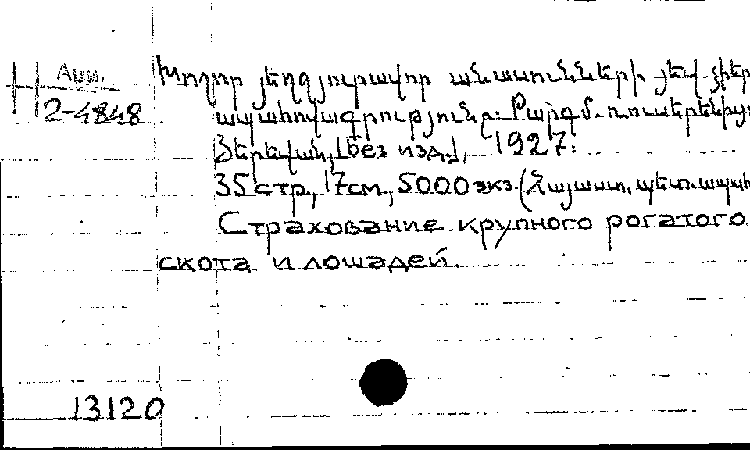 Асш.
2-4848
Խոշոր յեղջյուրավոր անասունների յեվ ձիեր
ապահովագրությունը: Թարգմ. ռուսերենից
Յերեվան, [без изд.], 1927:
35 стр., 17см., 5000 экз. (Հայաստ. պետ. ապահ
Страхование крупного рогатого
скота и лошадей.
13120